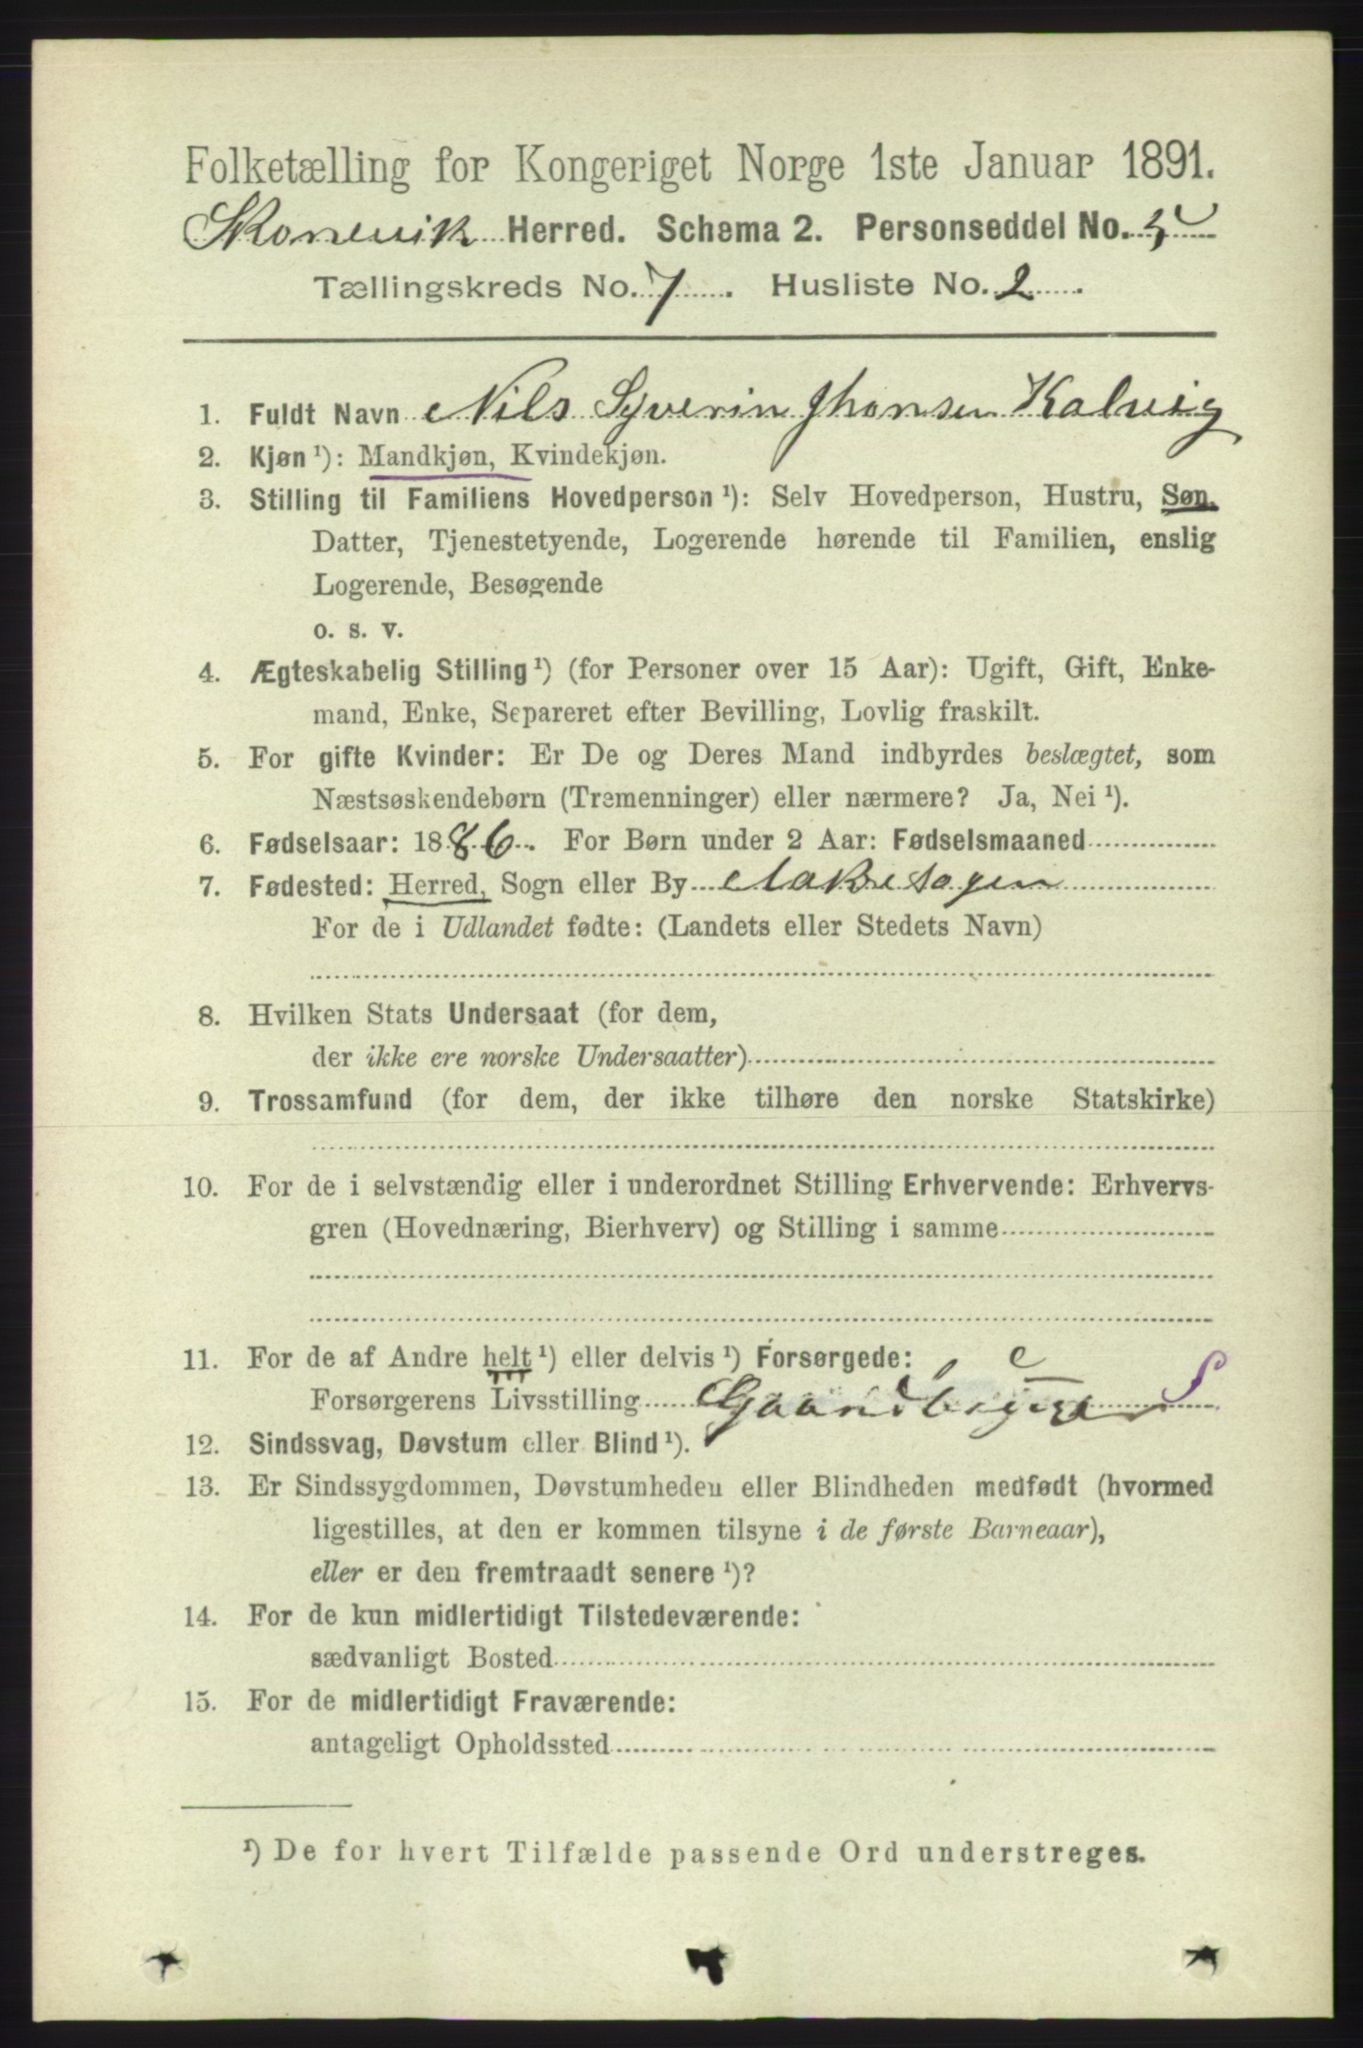 Folketælling for Kongeriget Norge 1ste Januar 1891.
Skonevik Herred. Schema 2. Personseddel No. 5
Tællingskreds No. 7. Husliste No. 2.
1. Fuldt Navn Nils Syverin Jhonsen Kalvig
2. Kjøn ¹): Mandkjøn, Kvindekjøn.
3. Stilling til Familiens Hovedperson ¹): Selv Hovedperson, Hustru, Søn,
Datter, Tjenestetyende, Logerende hørende til Familien, enslig
Logerende, Besøgende
o. s. v.
4. Ægteskabelig Stilling ¹) (for Personer over 15 Aar): Ugift, Gift, Enke-
mand, Enke, Separeret efter Bevilling, Lovlig fraskilt.
5. For gifte Kvinder: Er De og Deres Mand indbyrdes beslægtet, som
Næstsøskendebørn (Tremenninger) eller nærmere? Ja, Nei ¹).
6. Fødselsaar: 1886. For Børn under 2 Aar: Fødselsmaaned
7. Fødested: Herred, Sogn eller By
For de i Udlandet fødte: (Landets eller Stedets Navn)
8. Hvilken Stats Undersaat (for dem,
der ikke ere norske Undersaatter)
9. Trossamfund (for dem, der ikke tilhøre den norske Statskirke)
10. For de i selvstændig eller i underordnet Stilling Erhvervende: Erhvervs-
gren (Hovednæring, Bierhverv) og Stilling i samme
11. For de af Andre helt ¹) eller delvis ¹) Forsørgede:
Forsørgerens Livsstilling Gaardbruger S
12. Sindssvag, Døvstum eller Blind ¹).
13. Er Sindssygdommen, Døvstumheden eller Blindheden medfødt (hvormed
ligestilles, at den er kommen tilsyne i de første Barneaar),
eller er den fremtraadt senere ¹)?
14. For de kun midlertidigt Tilstedeværende:
sædvanligt Bosted
15. For de midlertidigt Fraværende:
antageligt Opholdssted
¹) De for hvert Tilfælde passende Ord understreges.